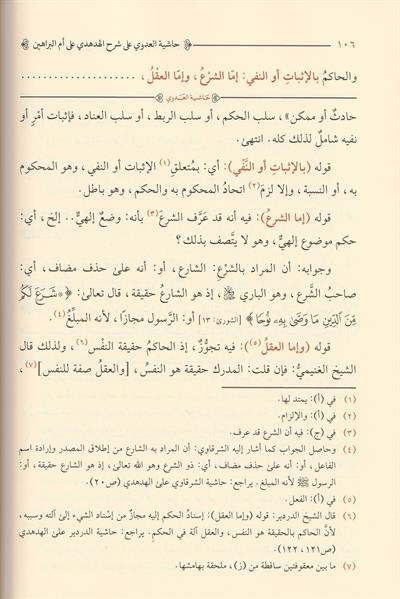 ١٠٦ حاشية العدوي على شرح الهدهدي على أم البراهين
والحاكمُ بالإثباتِ أو النفي: إمَّا الشرْعُ، وإمَّا العقْلُ، ....................
حَاشِيَة العَدَوي
حادثٌ أو ممكن»، سلب الحكم، أو سلب الربط، أو سلب العناد، فإثبات أمْرٍ أو
نفيه شاملٌ لذلك كله. انتهىٰ.
قوله (بالإثباتِ أو النَّفْي): أي: بمُتعلقِ(١) الإثبات أو النفي، وهو المحكوم
به، أو النسبة، وإلا لزمَ(٢) اتحادُ المحكوم به والحكم، وهو باطل.
قوله (إما الشرعُ): فيه أنه قد عَرَّف الشرعَ(٣) بأنه: وضعٌ إلهيٌّ.. إلخ، أي:
حكم موضوع إلهيٌّ، وهو لا يتَّصف بذلك؟
وجوابه: أن المراد بالشرْعِ: الشارع، أو: أنه علىٰ حذف مضاف، أي:
صاحبُ الشَّرع، وهو الباري ﷻ، إذ هو الشارعُ حقيقة، قال تعالىٰ: ﴿۞شَرَعَ لَكُم
مِّنَ ٱلدِّينِ مَا وَصَّىٰ بِهِۦ نُوحًا﴾ [الشورىٰ: ١٣] أو: الرَّسول مجازًا، لأنه المبلِّغُ(٤).
قوله (وإما العقلُ(٥)): فيه تجوُّزٌ، إذ الحاكمُ حقيقة النفْس(٦)، ولذلك قال
الشيخ الغنيميُّ: فإن قلت: المدرك حقيقة هو النفسُ، [والعقلُ صفة للنفس](٧)،
(١) في (أ): يمتد لها.
(٢) في (أ): والإلزام.
(٣) في (ج): فيه أن الشرع قد عرف.
(٤) وحاصل الجواب كما أشار إليه الشرقاوي: أن المراد به الشارع من إطلاق المصدر وإرادة اسم
الفاعل، أو: أنه علىٰ حذف مضاف، أي: ذو الشرع وهو الله تعالىٰ، إذ هو الشارع حقيقة، أو:
الرسول ﷺ لأنه المبلغ. يراجع: حاشية الشرقاوي على الهدهدي (ص٢٠).
(٥) في (أ): الفعل.
(٦) قال الشيخ الدردير: قوله (وإما العقل): إسناد الحكم إليه مجازٌ من إسناد الشيء إلىٰ آلته وسببه،
لأنَّ الحاكم بالحقيقة هو النفس، والعقل آلة في الحكمِ. يراجع: حاشية الدردير على الهدهدي
(ص١٢١، ١٢٢).
(٧) ما بين معقوفتين ساقطة من (ز)، ملحقة بهامشها.